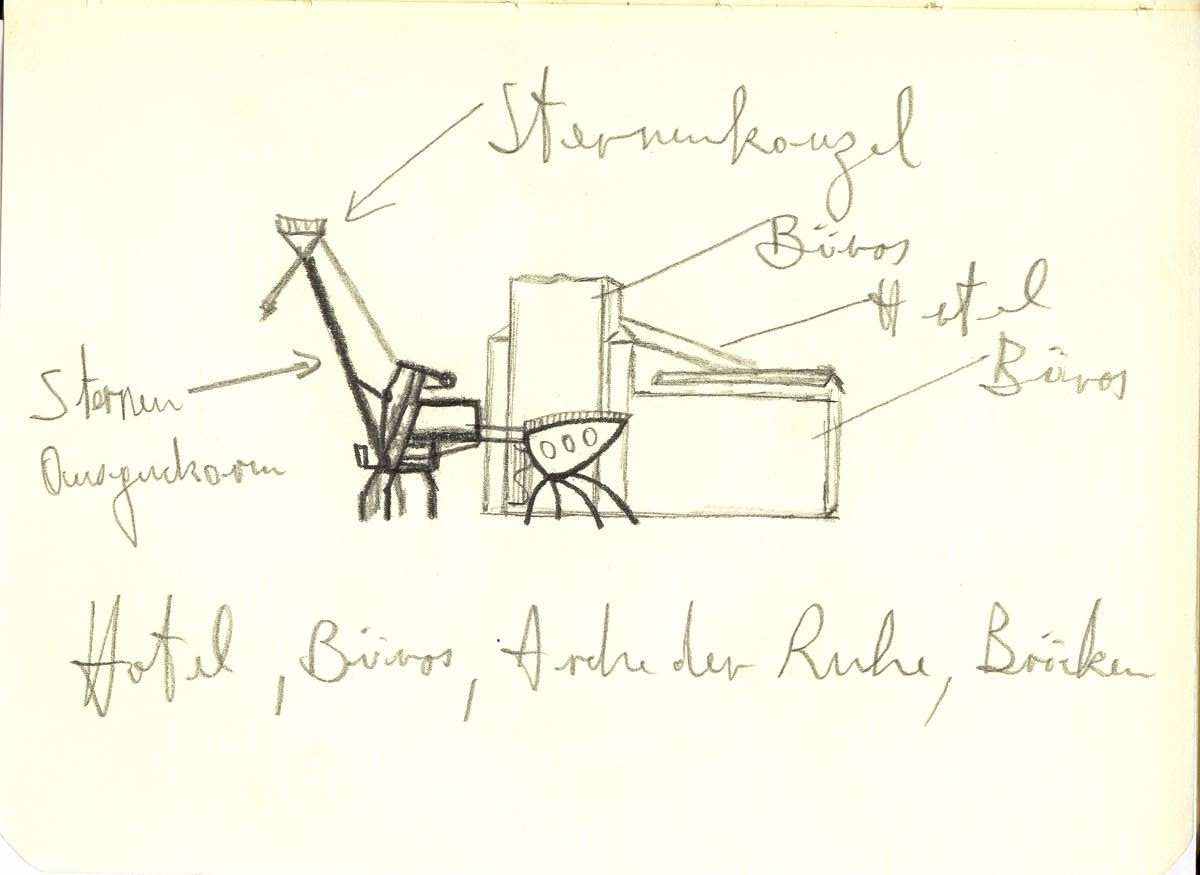 Sternenkanzel
Büros
Hotel
Büros
Sternen
Ausguckarm
Hotel, Büros, Arche der Ruhe, Brücken